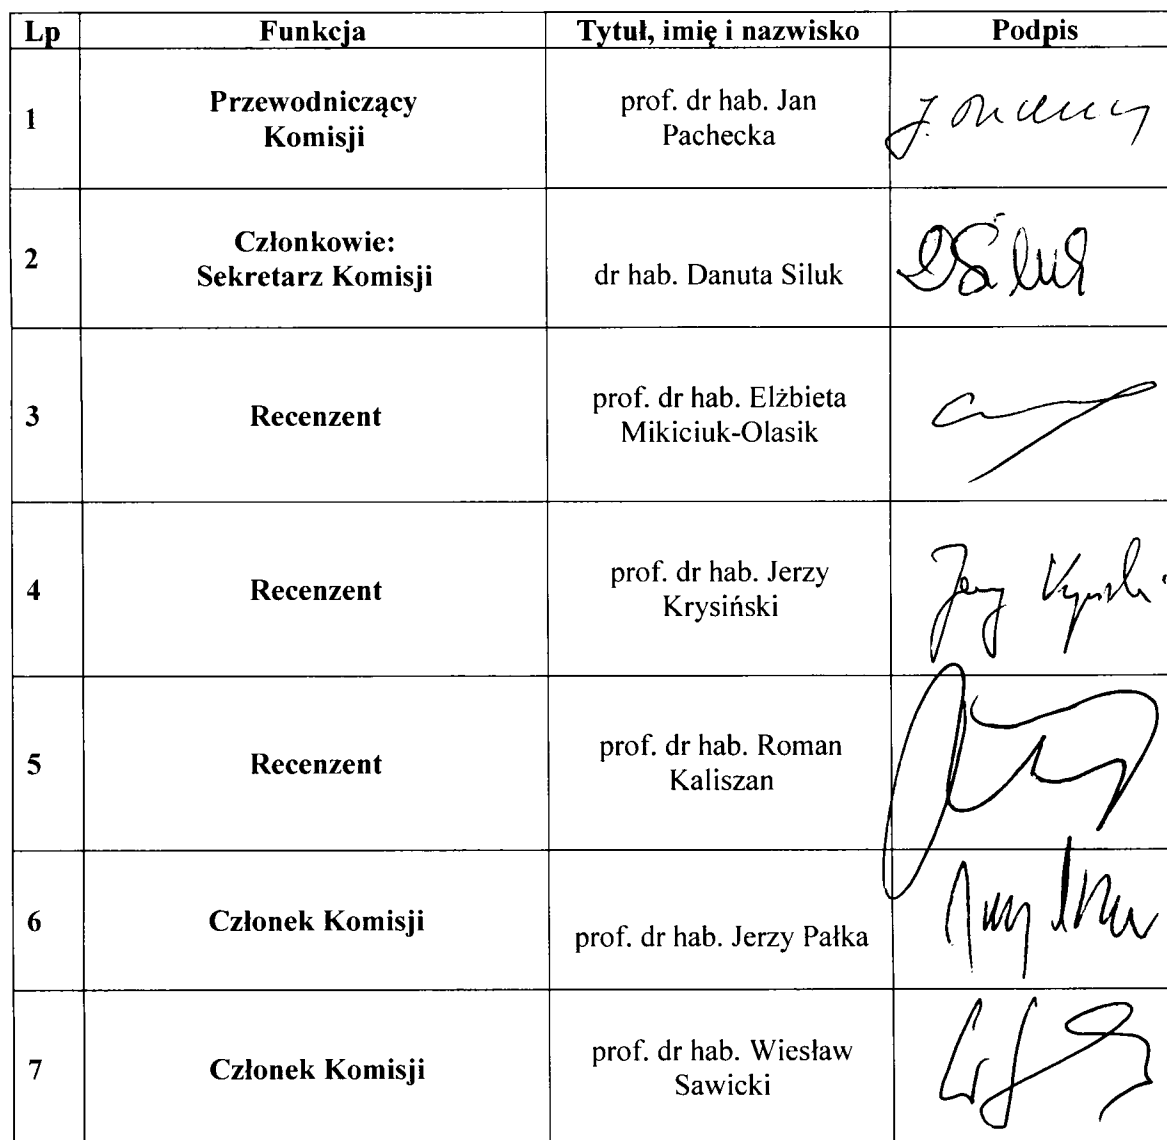 Lp Funkcja Tytuł, imię i nazwisko Podpis
1 Przewodniczący Komisji prof. dr hab. Jan Pachecka
2 Członkowie: Sekretarz Komisji dr hab. Danuta Siluk
3 Recenzent prof. dr hab. Elżbieta Mikiciuk-Olasik
4 Recenzent prof. dr hab. Jerzy Krysiński
5 Recenzent prof. dr hab. Roman Kaliszan
6 Członek Komisji prof. dr hab. Jerzy Pałka
7 Członek Komisji prof. dr hab. Wiesław Sawicki